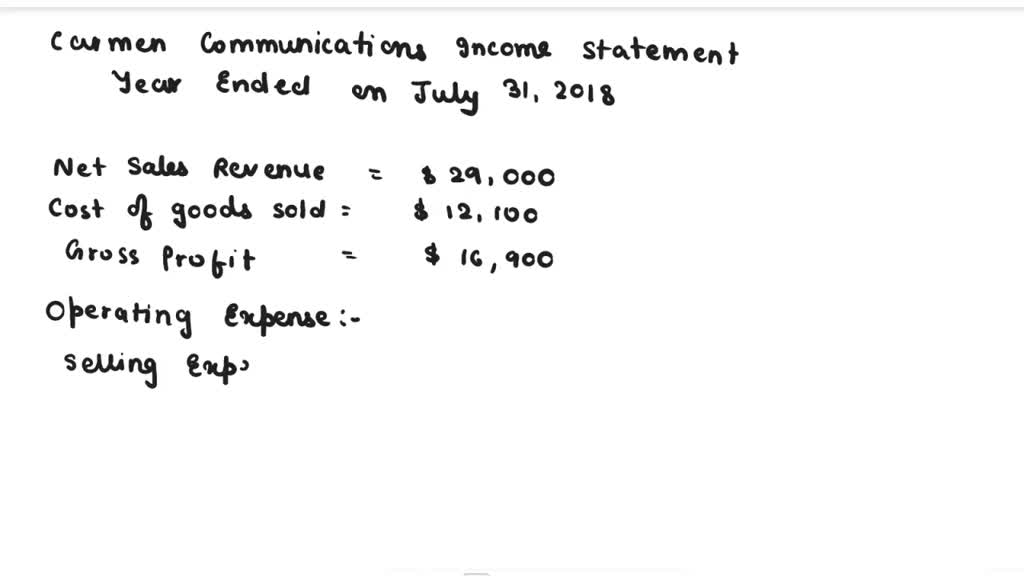 Carmen Communications Income Statement
Year Ended on July 31, 2018
Net Sales Revenue = $ 29,000
Cost of goods sold = $ 12,100
Gross Profit = $ 16,900
Operating Expense:-
Selling Exp